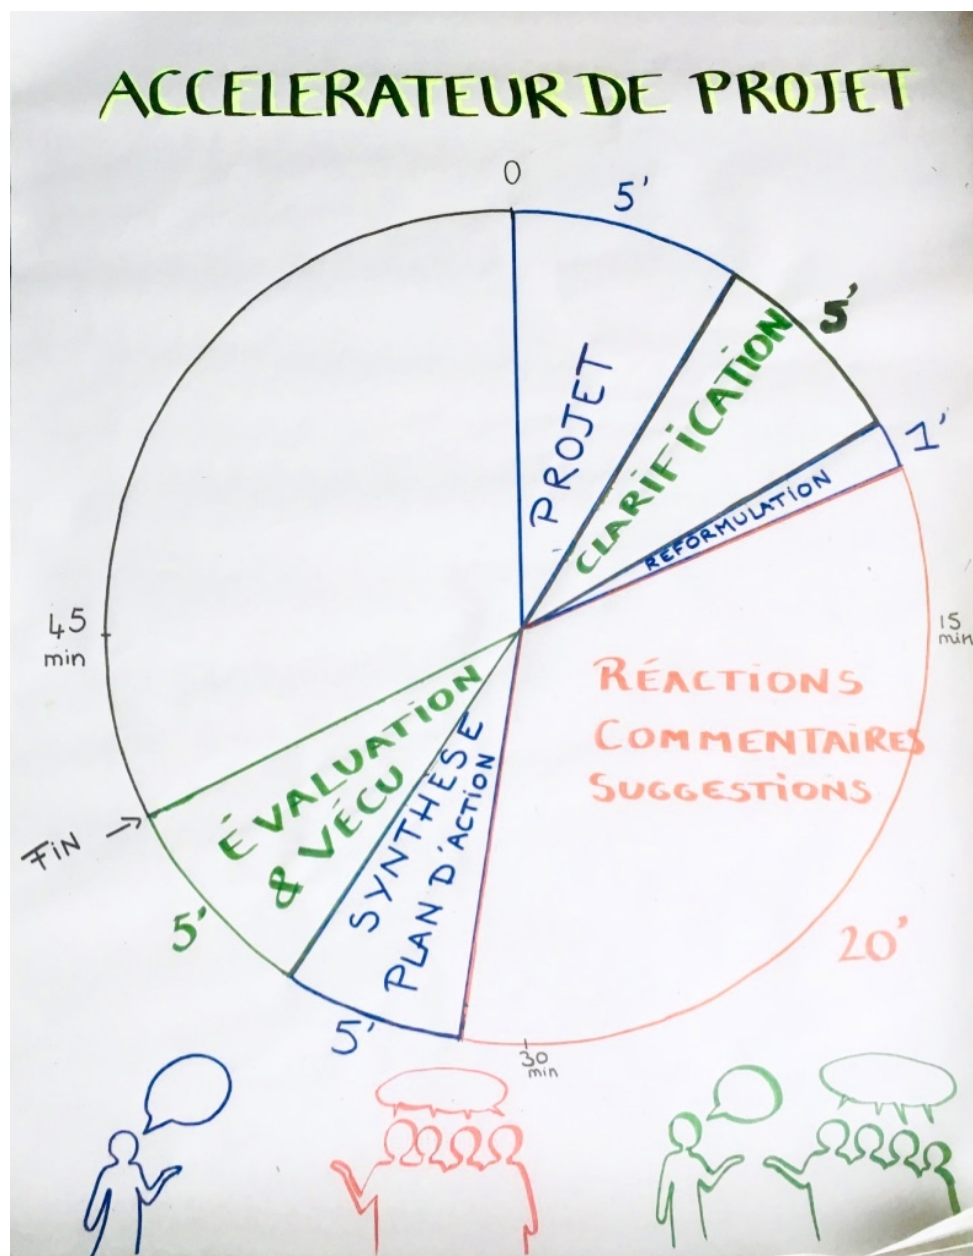 ACCELERATEUR DE PROJET
0
5'
PROJET
5'
CLARIFICATION
1'
REFORMULATION
15
min
RÉACTIONS
COMMENTAIRES
SUGGESTIONS
20'
30
min
SYNTHÈSE
PLAN D'ACTION
5'
ÉVALUATION
& VÉCU
5'
FIN
45
min